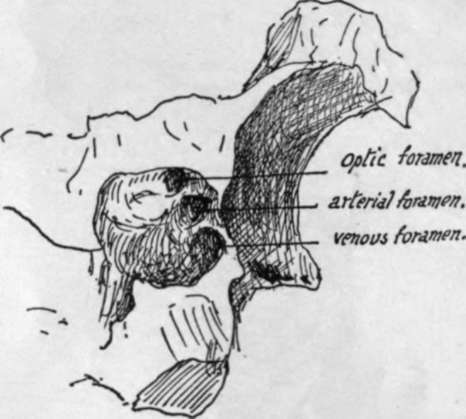 optic foramen.
arterial foramen.
venous foramen.